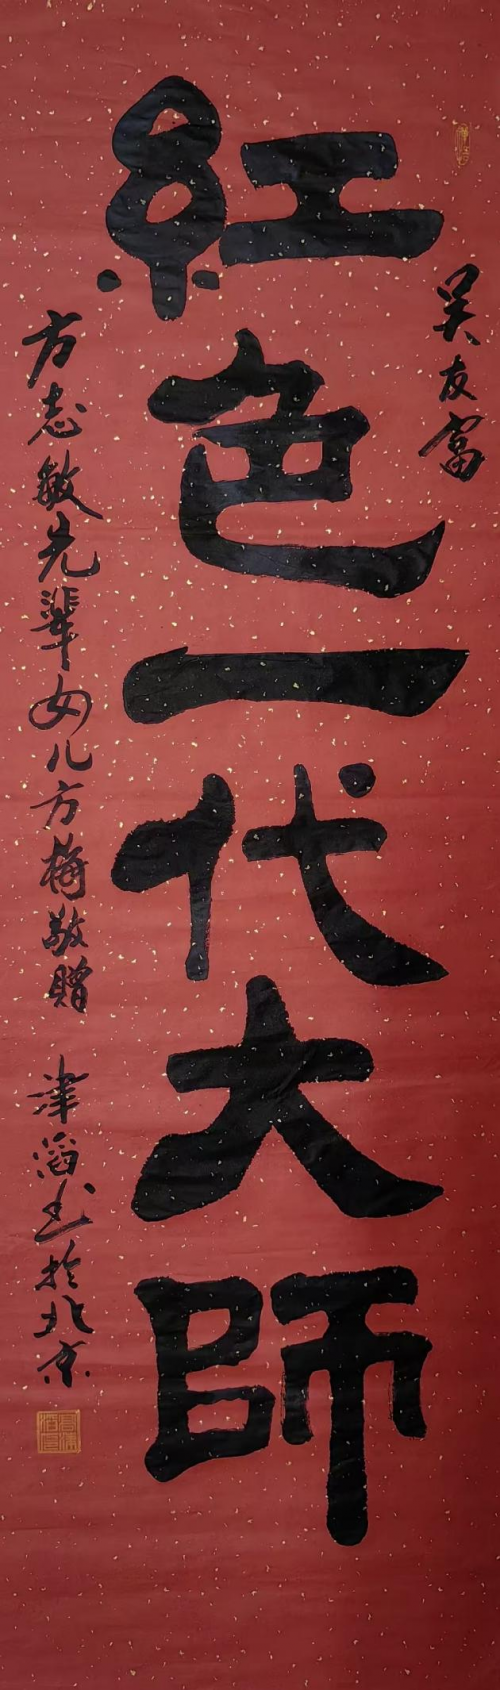 吴友富
紅色一代大師
方志敏先辈女儿方梅敬赠
津滔书於北京